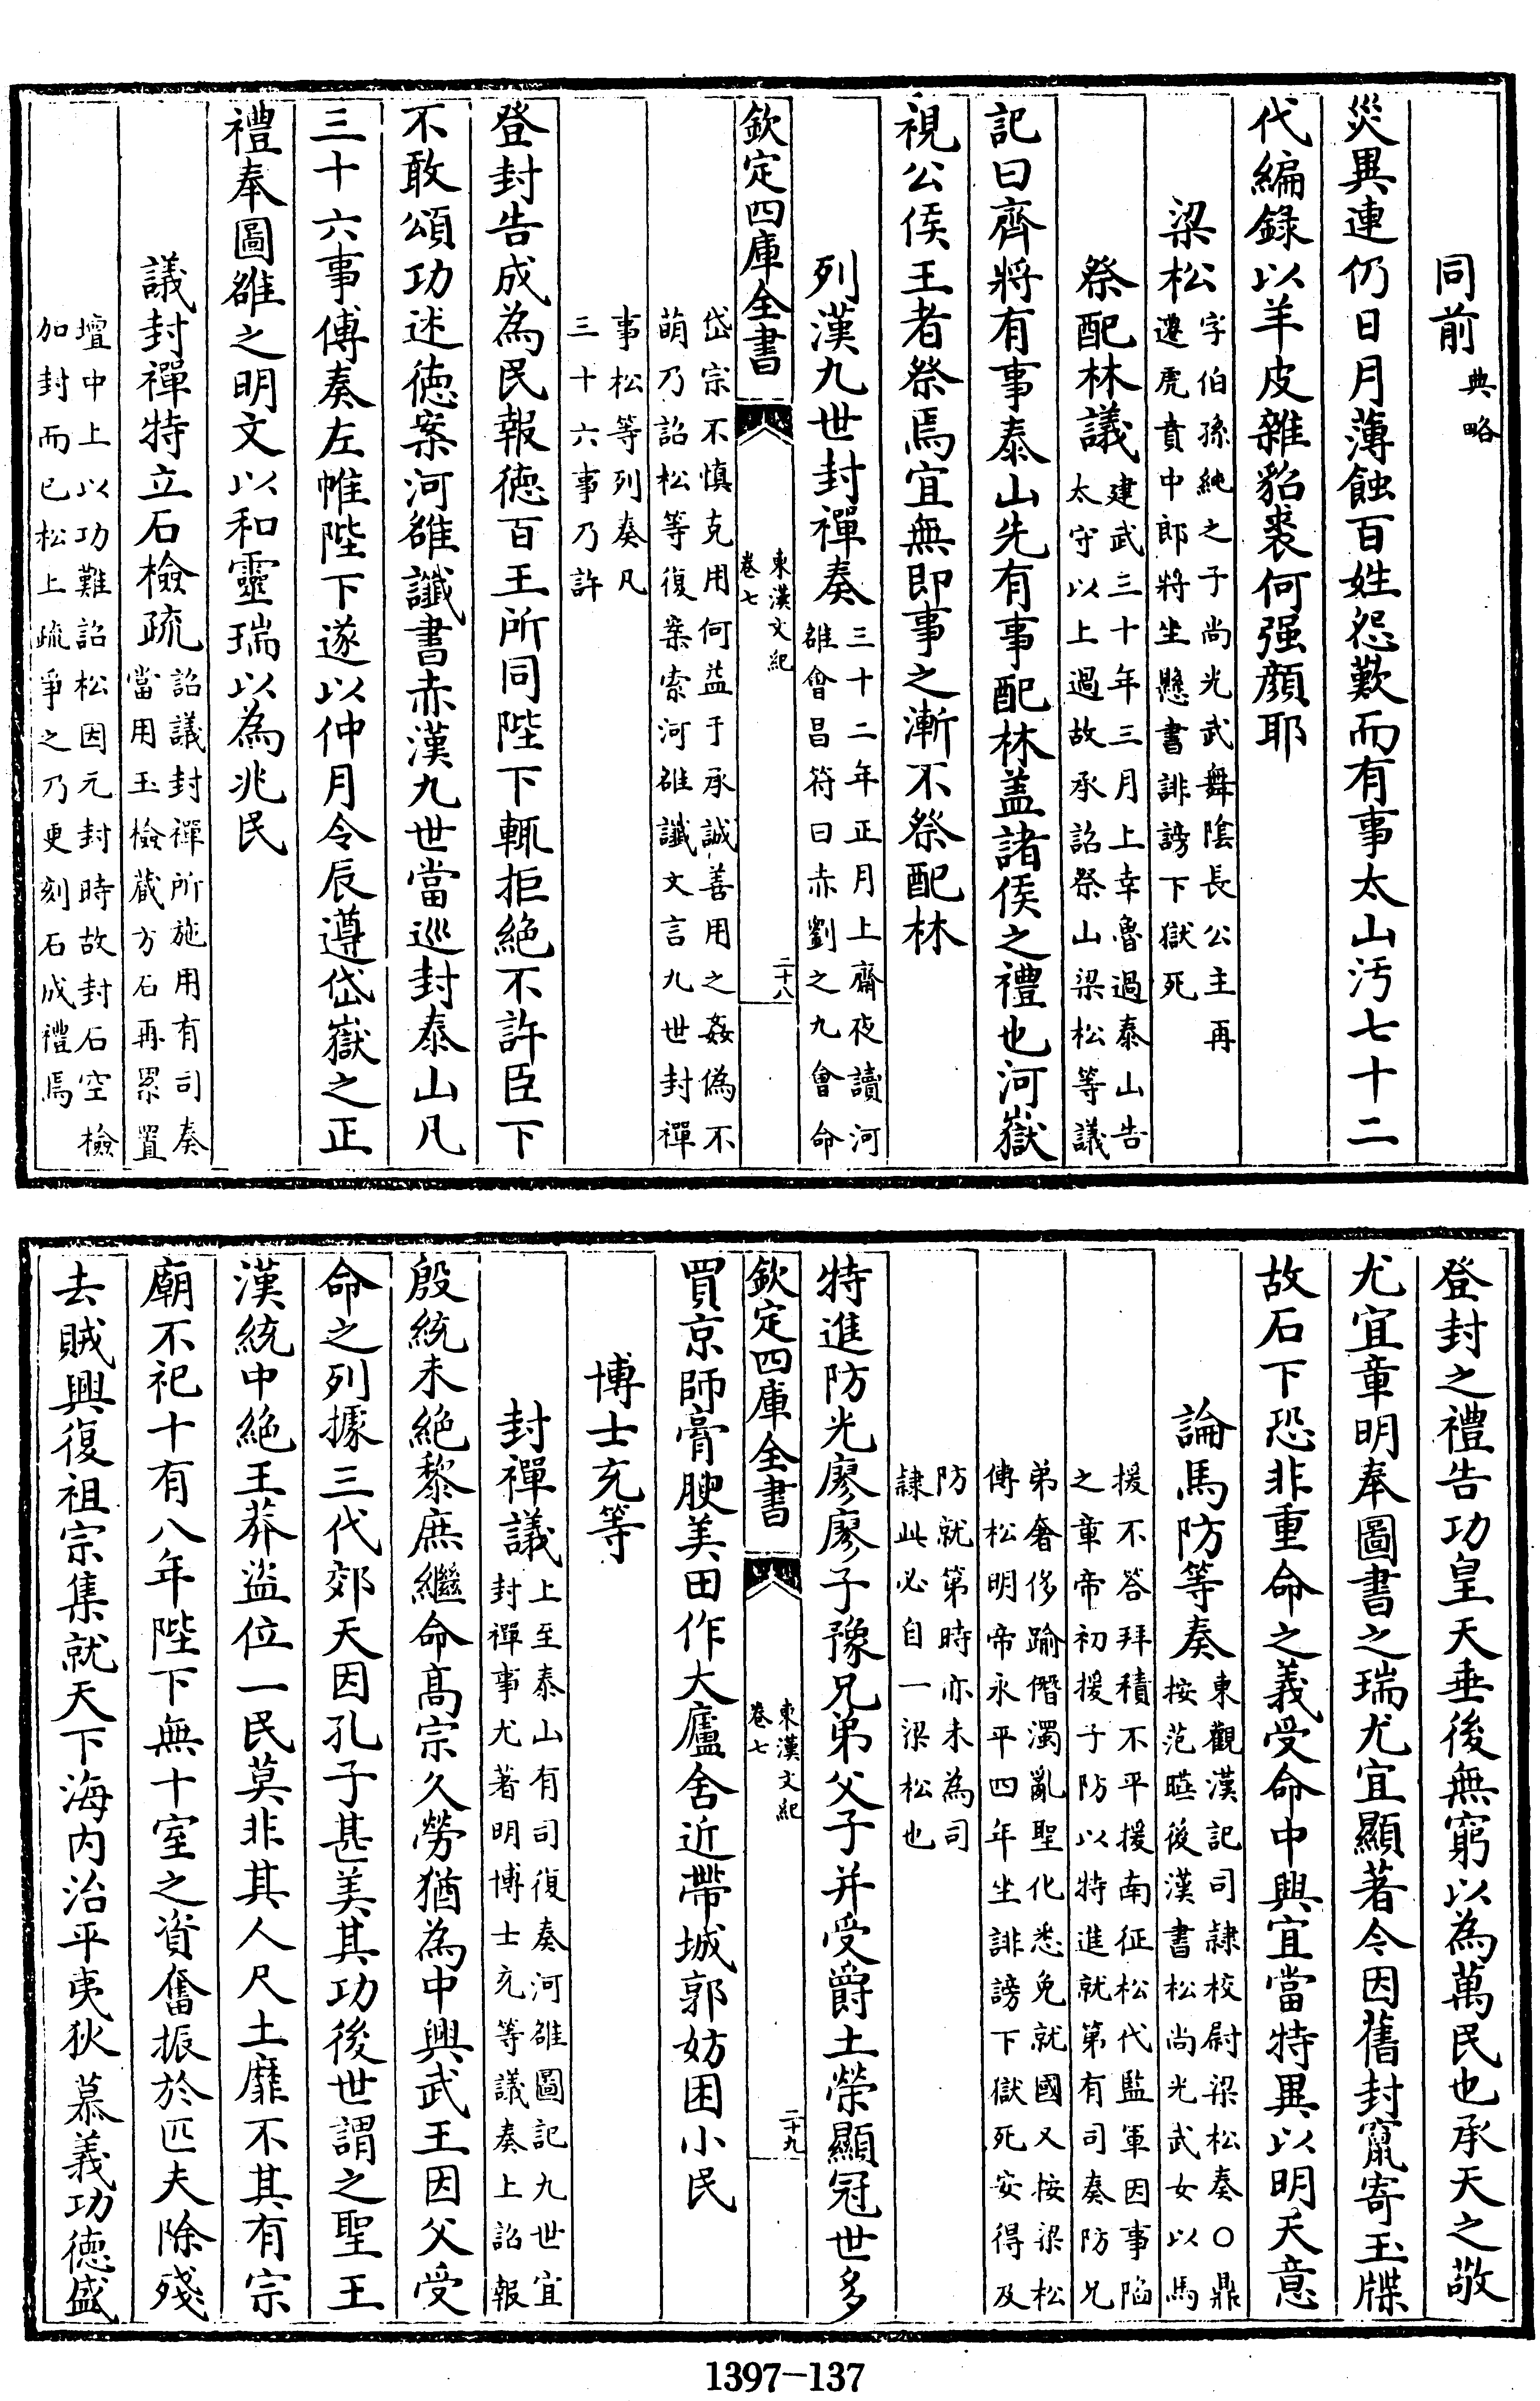 同前典略
災異連仍日月薄蝕百姓怨歎而有事太山汚七十二
代編錄以羊皮雜貂裘何强顔耶
梁松字伯孫純之子尚光武舞隂長公主再
遷虎賁中郎將坐懸書誹謗下獄死
祭配林議建武三十年三月上幸魯過泰山告
太守以上過故承詔祭山梁松等議
記曰齊將有事泰山先有事配林盖諸侯之禮也河嶽
視公侯王者祭焉宜無即事之漸不祭配林
列漢九世封禪奏三十二年正月上齋夜讀河
雒會昌符曰赤劉之九會命
欽定四庫全書
東漢文紀
卷七
二十八
岱宗不慎克用何益于承誠善用之姦偽不
萌乃詔松等復案索河雒讖文言九世封禪
事松等列奏凡
三十六事乃許
登封告成為民報德百王所同陛下輒拒絶不許臣下
不敢頌功述德案河雒讖書赤漢九世當巡封泰山凡
三十六事傅奏左帷陛下遂以仲月令辰遵岱嶽之正
禮奉圖雒之明文以和靈瑞以為兆民
議封禪特立石檢疏詔議封禪所施用有司奏
當用玉檢蔵方石再累置
壇中上以功難詔松因元封時故封石空檢
加封而已松上疏爭之乃更刻石成禮焉
登封之禮告功皇天垂後無窮以為萬民也承天之敬
尤宜章明奉圖書之瑞尤宜顯著今因舊封竄寄玉牒
故石下恐非重命之義受命中興宜當特異以明天意
論馬防等奏東觀漢記司隷校尉梁松奏○鼎
按范曄後漢書松尚光武女以馬
援不答拜積不平援南征松代監軍因事陷
之章帝初援子防以特進就第有司奏防兄
弟奢侈踰僭濁亂聖化悉免就國又按梁松
傳松明帝永平四年坐誹謗下獄死安得及
防就第時亦未為司
隷此必自一梁松也
特進防光廖廖子豫兄弟父子并受爵土榮顯冠世多
欽定四庫全書
東漢文紀
卷七
二十九
買京師膏腴美田作大廬舍近帶城郭妨困小民
博士充等
封禪議上至泰山有司復奏河雒圖記九世宜
封禪事尤著明博士充等議奏上詔報
殷統未絶黎庶繼命高宗久勞猶為中興武王因父受
命之列據三代郊天因孔子甚美其功後世謂之聖王
漢統中絶王莽盜位一民莫非其人尺土靡不其有宗
廟不祀十有八年陛下無十室之資奮振於匹夫除殘
去賊興復祖宗集就天下海内治平夷狄慕義功德盛
1397-137